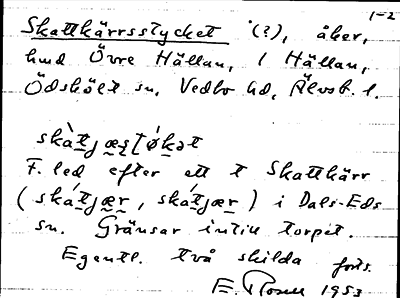 1-2
Skattkärrsstycket (?), åker,
hmd Övre Hällan, 1 Hällan,
Ödskölt sn, Vedbo hd, Älvsb. l.
skàtjæʂʈǿkət
F. led efter ett t Skattkärr
(skátjær, skátjær) i Dals-Eds
sn. Gränsar intill torpet.
Egentl. två skilda
E. Rosell 1953